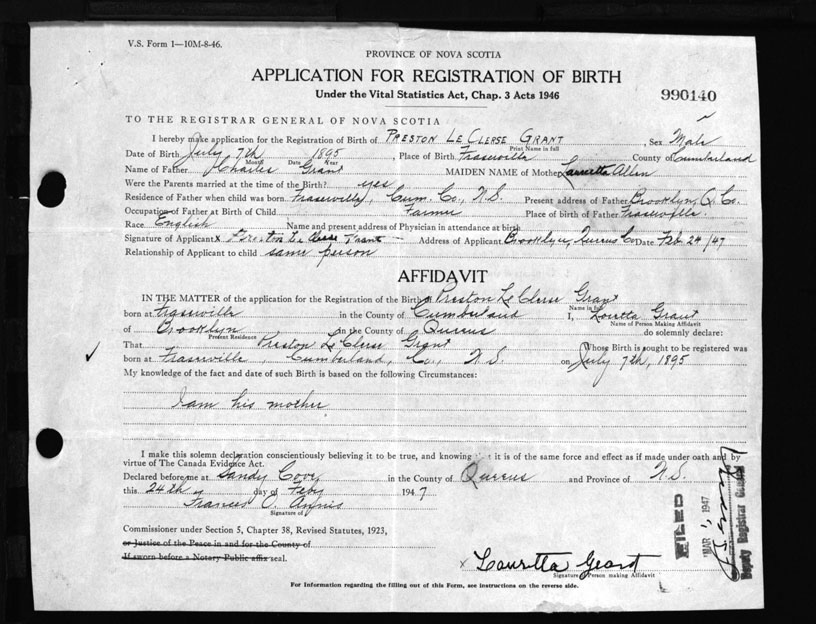 V.S. Form 1—10M-8-46.
PROVINCE OF NOVA SCOTIA
APPLICATION FOR REGISTRATION OF BIRTH
Under the Vital Statistics Act, Chap. 3 Acts 1946
990140
TO THE REGISTRAR GENERAL OF NOVA SCOTIA
I hereby make application for the Registration of Birth of PRESTON LE CLERSE GRANT, Sex Male
Print Name in full
Date of Birth July 7th 1895, Place of Birth Fraserville County of Cumberland
Month Date Year
Name of Father Charles Grant MAIDEN NAME of Mother Lauretta Allen
Were the Parents married at the time of the Birth? yes
Residence of Father when child was born Fraserville, Cum. Co., N.S. Present address of Father Brooklyn, Q. Co.
Occupation of Father at Birth of Child Farmer Place of birth of Father Fraserville.
Race English Name and present address of Physician in attendance at birth
Signature of Applicant x Preston Le Clerse Grant Address of Applicant Brooklyn, Queens Co Date Feb 24/47
Relationship of Applicant to child same person
AFFIDAVIT
IN THE MATTER of the application for the Registration of the Birth of Preston Le Clerse Grant
Name in full
born at Fraserville in the County of Cumberland I, Loretta Grant
Name of Person Making Affidavit
of Brooklyn in the County of Queens do solemnly declare:
Present Residence
That Preston Le Clerse Grant Whose Birth is sought to be registered was
born at Fraserville, Cumberland, Co., N.S. on July 7th, 1895
My knowledge of the fact and date of such Birth is based on the following Circumstances:
I am his mother
I make this solemn declaration conscientiously believing it to be true, and knowing it is of the same force and effect as if made under oath and by
virtue of The Canada Evidence Act.
Declared before me at Sandy Cove in the County of Queens and Province of N.S.
this 24th day of Feby 1947
Frances O. Annis
Signature of
Commissioner under Section 5, Chapter 38, Revised Statutes, 1923,
or Justice of the Peace in and for the County of
If sworn before a Notary Public affix seal.
x Lauretta Grant
Signature Person making Affidavit
FILED
MAR 1947
Deputy Registrar General
For Information regarding the filling out of this Form, see instructions on the reverse side.